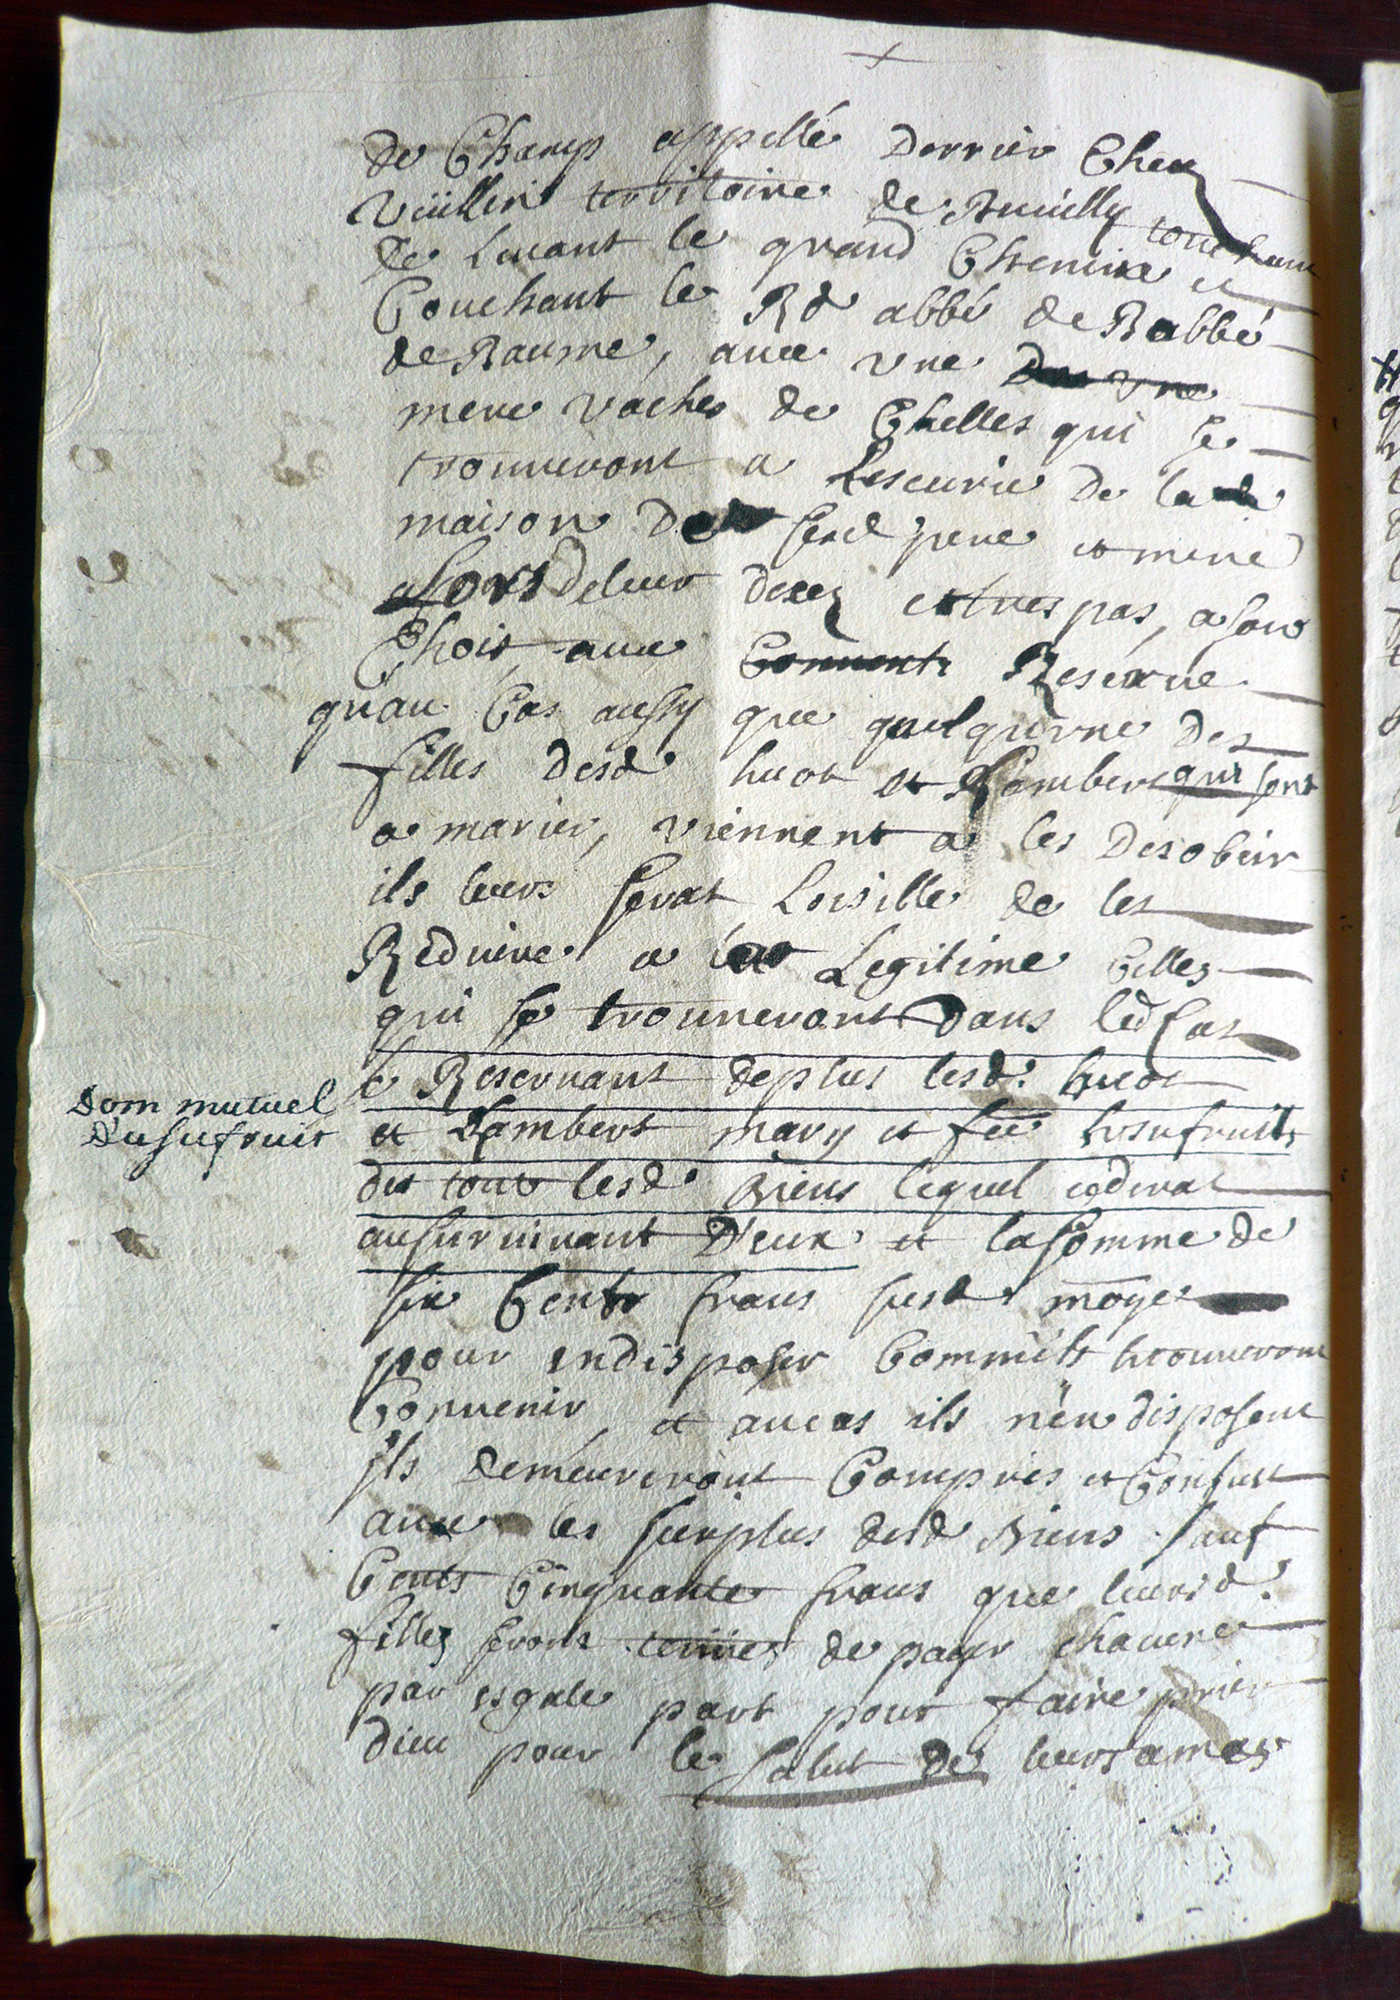 de Champ appellé Derrier Chez
Vüillin territoire de Bruilly touchant
de Leuant le grand Chemin et
Couchant le Rd abbé de Rabbé
de Baume, auec vne
mere vaches de Chelles qui se
trouueront a Lescurie De la
maison De Sesd pere et mere
a Lors deleur decez et trespas, a son
Choit auec Reserue
qu'au Cas aussy que quelqu'vne Des
filles Desd huot et Lambert qui sont
a marier, viennent a les Desobeir
ils leurs serat Loisille de les
Reduire a Legitime Celles
qui se trouueront Dans led Cas
se Reseruant deplus lesd. huot
Dom mutuel
d'usufruit
et Lambert mary et fee Lusufruit
du tout lesd Biens lequel cederat
au suruiuant D'eux et la somme de
six Cents frans susd moyes
pour en disposer Comm'ils trouueront
Conuenir, et au cas ils n'en disposent
ils demeureront Compris et Confust
auec les surplus desd Biens sauf
Cents Cinquante frans que leursd.
filles seront tenües de payer chacune
par esgale part pour faire prier
dieu pour le Salut de leurs ames